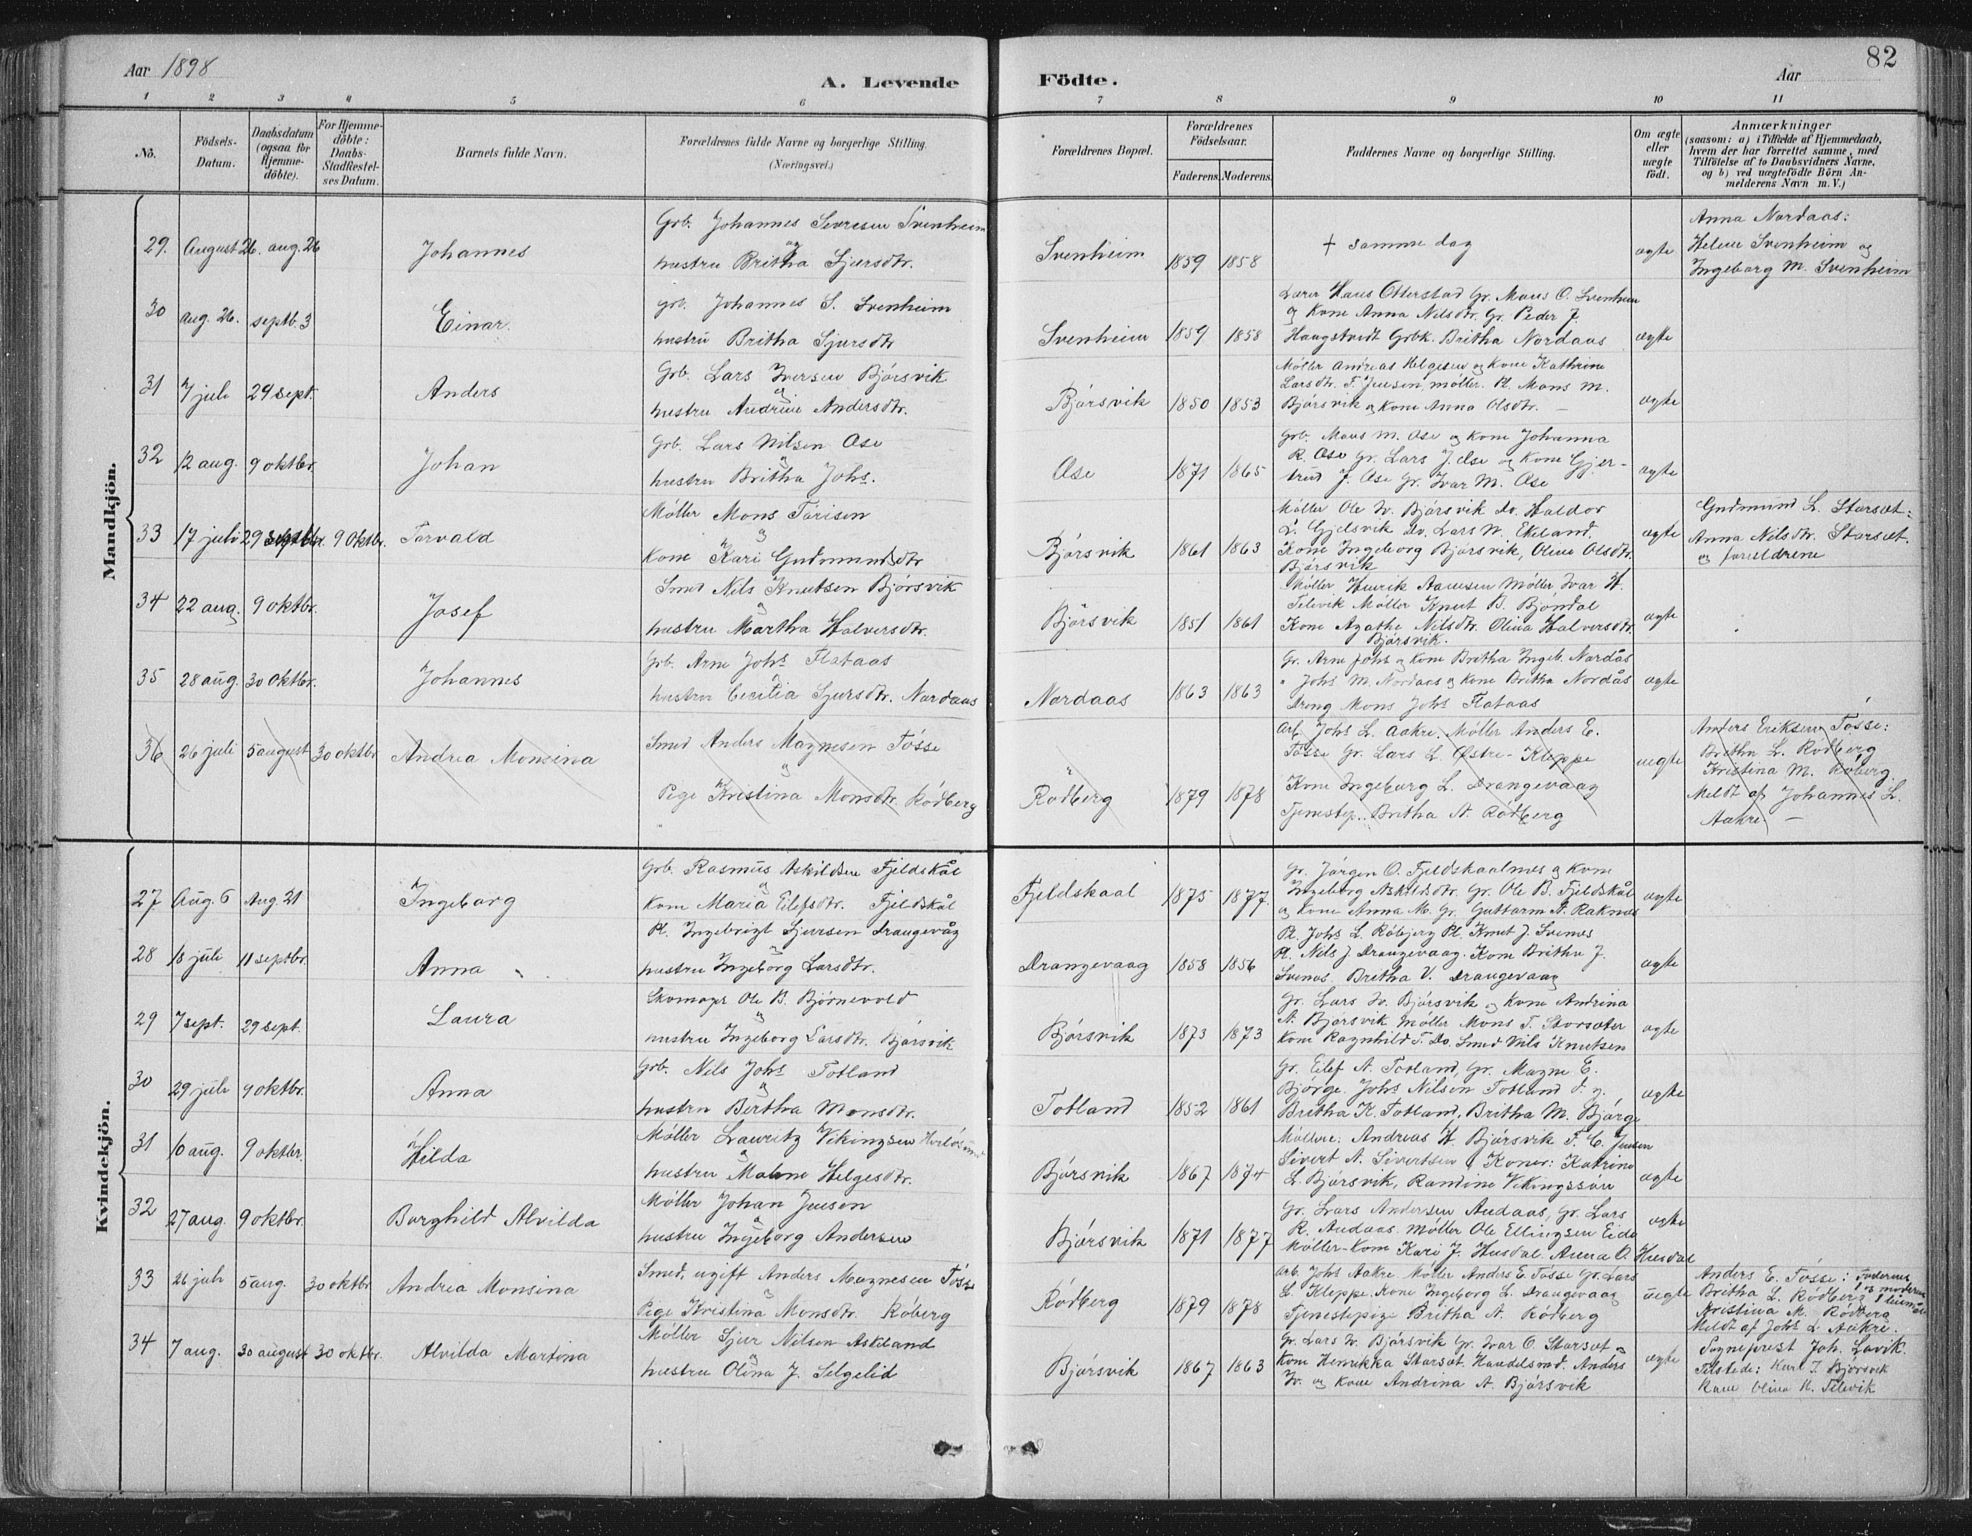 Aar 1898
A. Levende Födte.
Aar
82
1 2 3 4 5 6 7 8 9 10 11
No.
Födsels-Datum.
Daabsdatum (ogsaa for Hjemme-döbte).
For Hjemme-döbte: Daabs-Stadfæstel-ses Datum.
Barnets fulde Navn.
Forældrenes fulde Navne og borgerlige Stilling. (Næringsvei.)
Forældrenes Bopæl.
Forældrenes Födselsaar.
Faderens. Moderens.
Faddernes Navne og borgerlige Stilling.
Om ægte eller uægte födt.
Anmærkninger
(saasom: a) i Tilfælde af Hjemmedaab,
hvem der har forrettet samme, med
Tilföielse af to Daabsvidners Navne,
og b) ved uægtefödte Börn An-
melderens Navn m. V.)
Mandkjön.
29. August 26. aug. 26 Johannes
Grb. Johannes Sivresen Svenheim
og
hustru Britha Sjursdtr.
Svenheim 1859 1858
+ samme dag
ægte
Anna Nordaas:
Helene Svenheim og
Ingeborg M. Svenheim
30 aug. 26. septb. 3 Einar.
grb. Johannes S. Svenheim
hustru Britha Sjursdtr
Svenheim 1859 1858
Lærer Hans Otterstad Gr. Mons O. Svenheim
og Kone Anna Nilsdtr. Gr. Peder J.
Haugstvedt Grbk. Britha Nordaas
ægte
31 7 juli 29 sept. Anders
Grb. Lars Iversen Bjórsvik
og
hustru Andrine Andersdtr.
Bjórsvik 1850 1853
Móller Andreas Helgesen og Kone Kathrine
Larsdtr. T. Jensen, móller. Pl. Mons M.
Bjórsvik og Kone Anna Olsdtr. —
ægte
32 12 aug. 9 oktbr. Johan
Grb. Lars Nilsen Ose
og
hustru Britha Johs.
Ose 1871 1865
Grb. Mons M. Ose og Kone Johanna
R. Ose Gr. Lars J. Ose og Kone Gjer-
trud J. Ose Gr. Ivar M. Ose
ægte
33 17 juli 29 septbr. 9 Oktbr. Torvald
Móller Mons Torisen
og
Kone Kari Gudmundsdtr
Bjórsvik 1861 1863
Móller Ole W. Bjórsvik Do. Haldor
L. Gjelsvik Do. Lars N. Ekeland.
Kone Ingeborg Bjórsvik, Oline Olsdtr.
Bjórsvik
ægte
Gudmund L. Storsæt:
Anna Nilsdtr. Storsæt.
og forældrene
34 22 aug. 9 oktbr. Josef
Smed Nils Knutsen Bjórsvik
og
hustru Martha Halversdtr.
Bjórsvik 1851 1861
Móller Henrik Aamesen Móller, Ivar H.
Televik Móller Knut B. Bjondal
Kone Agathe Nilsdtr. Olina Halversdtr.
Bjórsvik.
ægte
35 28 aug. 30 Oktbr. Johannes
Grb. Arne Johs Flataas
og
hustru Cecilia Sjursdtr. Nordaas
Nordaas 1863 1863
Gr. Arne Johs og Kone Britha Ingeb. Nordås
" Johs M. Nordaas og Kone Britha Nordås
Dreng Mons Johs Flataas
ægte
36 26 juli 5 august 30 oktbr Andrea Monsina
Smed Anders Magnesen Tósse
og
Pige Kristina Monsdtr. Ródberg
Ródberg 1879 1878
Arb. Johs L. Aakre. Móller Anders E.
Tósse Gr. Lars L. Østre-Kleppe
Kone Ingeborg L. Drangevaag
Tjenestep. Britha A. Ródberg
uægte
Anders Eriksen Tósse:
Britha L. Ródberg
Kristina M. Róberg.
Meldt af Johannes L.
Aakre —
Kvindekjön.
27 Aug. 6 Aug. 21 Ingeborg
Grb. Rasmus Askildsen Fjeldskål
og
Kone Maria Eilefsdtr. Fjeldskål
Fjeldskaal 1875 1877.
Gr. Jórgen O. Fjeldskaalmes og Kone
Ingeborg Askildsdtr. Gr. Ole B. Fjeldskål
og Kone Anna M. Gr. Guttorm A. Raknes
ægte
28 18 juli 11 septbr. Anna
Pl. Ingebrigt Sjursen Drangevåg
og
hustru Ingeborg Larsdtr.
Drangevaag 1858 1856
Pl. Johs L. Róbjerg Pl. Knut J. Svenes
Pl. Nils J. Drangevaag. Kone Britha J.
Svenes. Bretha V. Drangevaag
ægte
29 7 sept. 29 sept. Laura
Skomager Ole B. Bjórnevold
og
hustru Ingeborg Larsdtr. Bjórsvik
Bjórsvik 1873 1873
Gr. Lars Iv. Bjórsvik og Kone Andrina
A. Bjórsvik Móller Mons T. Storsæter
Kone Ragnhild T. Do. Smed Nils Knutsen
ægte
30 29 juli 9 oktbr. Anna
Grb. Nils Johs Totland
og
hustru Bertha Monsdtr.
Totland 1852 1861
Gr. Eilef A. Totland, Gr. Magne E.
Bjórge. Johs Nilsen Totland d. y.
Britha K. Totland, Britha M. Bjórge
ægte
31 10 aug. 9 oktbr. Hilda
Móller Lauritz Vikingsen
og
hustru Malene Helgesdtr.
Bjórsvik 1867 1874
Móllere: Andreas H. Bjórsvik T. C. Jensen
Sivert A. Sivertsen Koner: Katrine
L. Bjórsvik, Randine Vikingssón
ægte
32 27 aug. 9 oktbr. Borghild Alvilda
Móller Johan Jenson
og
hustru Ingeborg Andersen
Bjórsvik 1871 1877
Gr. Lars Andersen Andaas, Gr. Lars
R. Andaas. Móller Ole Ellingsen Eide
Móller-Kone Kari J. Husdal. Anna O. Husdal
ægte
33 26 juli 5 aug. 30 oktbr Andrea Monsina
Smed, ugift Anders Magnesen Tósse
og
Pige Kristina Monsdtr. Róberg
Ródberg 1879 1878
Arb. Johs Aakre Móller Anders E. Tósse Gr. Lars
L. Kleppe. Kone Ingeborg L. Drangevaag
Tjenestepige Britha A. Ródberg
uægte
Anders E. Tósse:
Britha L. Ródberg
Kristina M. Ródberg
Meldt af Johs L. Aakre.
34 7 aug. 30 august 30 oktbr. Alvilda Martina
Móller Sjur Nilsen Askeland
og
hustru Olina J. Selgelid
Bjórsvik 1867 1863
Gr. Lars Iv. Bjórsvik Gr. Ivar O. Storsæt og
Kone Henrikka Storsæt. Handelsmd. Anders
Iv. og Kone Andrina A. Bjórsvik
ægte
Sogneprest Joh. Lavik.
Tilstede: Karl I. Bjórsvik
Kone Olina H. Televik